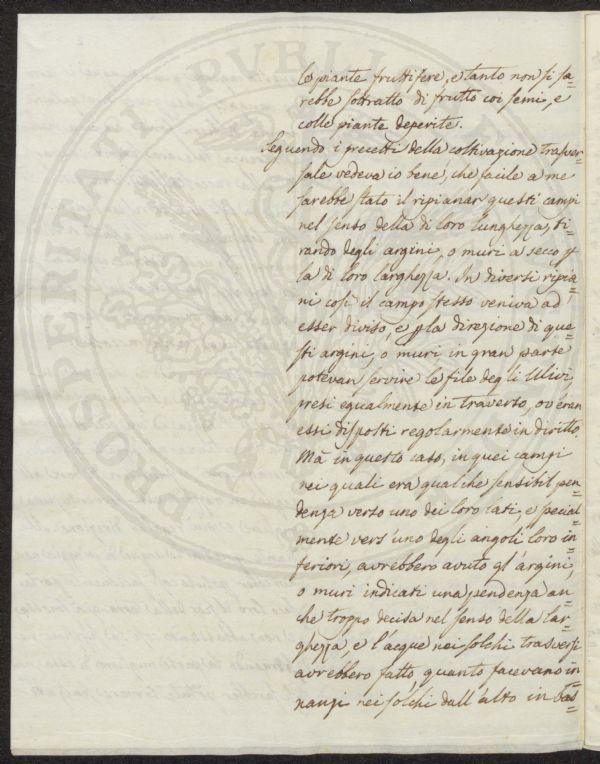 le piante fruttifere, e tanto non si sa=
rebbe sottratto di frutto coi semi, e
colle piante deperite.
Seguendo i precetti della coltivazione trasver=
sale vedeva io bene, che facile a me
sarebbe stato il ripianar questi campi
nel senso della di loro lunghezza, ti=
rando degli argini, o muri a secco p
la di loro larghezza. In diversi ripia=
ni così il campo stesso veniva ad
esser diviso, e p la direzione di que=
sti argini, o muri in gran parte
potevan servire le file degli Ulivi,
presi egualmente in traverso, ov'eran
essi disposti regolarmente in diritto.
Mà in questo caso, in quei campi
nei quali era qualche sensibil pen=
denza verso uno dei loro lati, e special=
mente vers'uno degli angoli loro in=
feriori, avrebbero avuto gl'argini,
o muri indicati una pendenza an=
che troppo decisa nel senso della lar=
ghezza, e l'acque nei solchi trasversi
avrebbero fatto quanto facevano in=
nanzi nei solchi dall'alto in bas=
PVBLI
PROSPERITATI